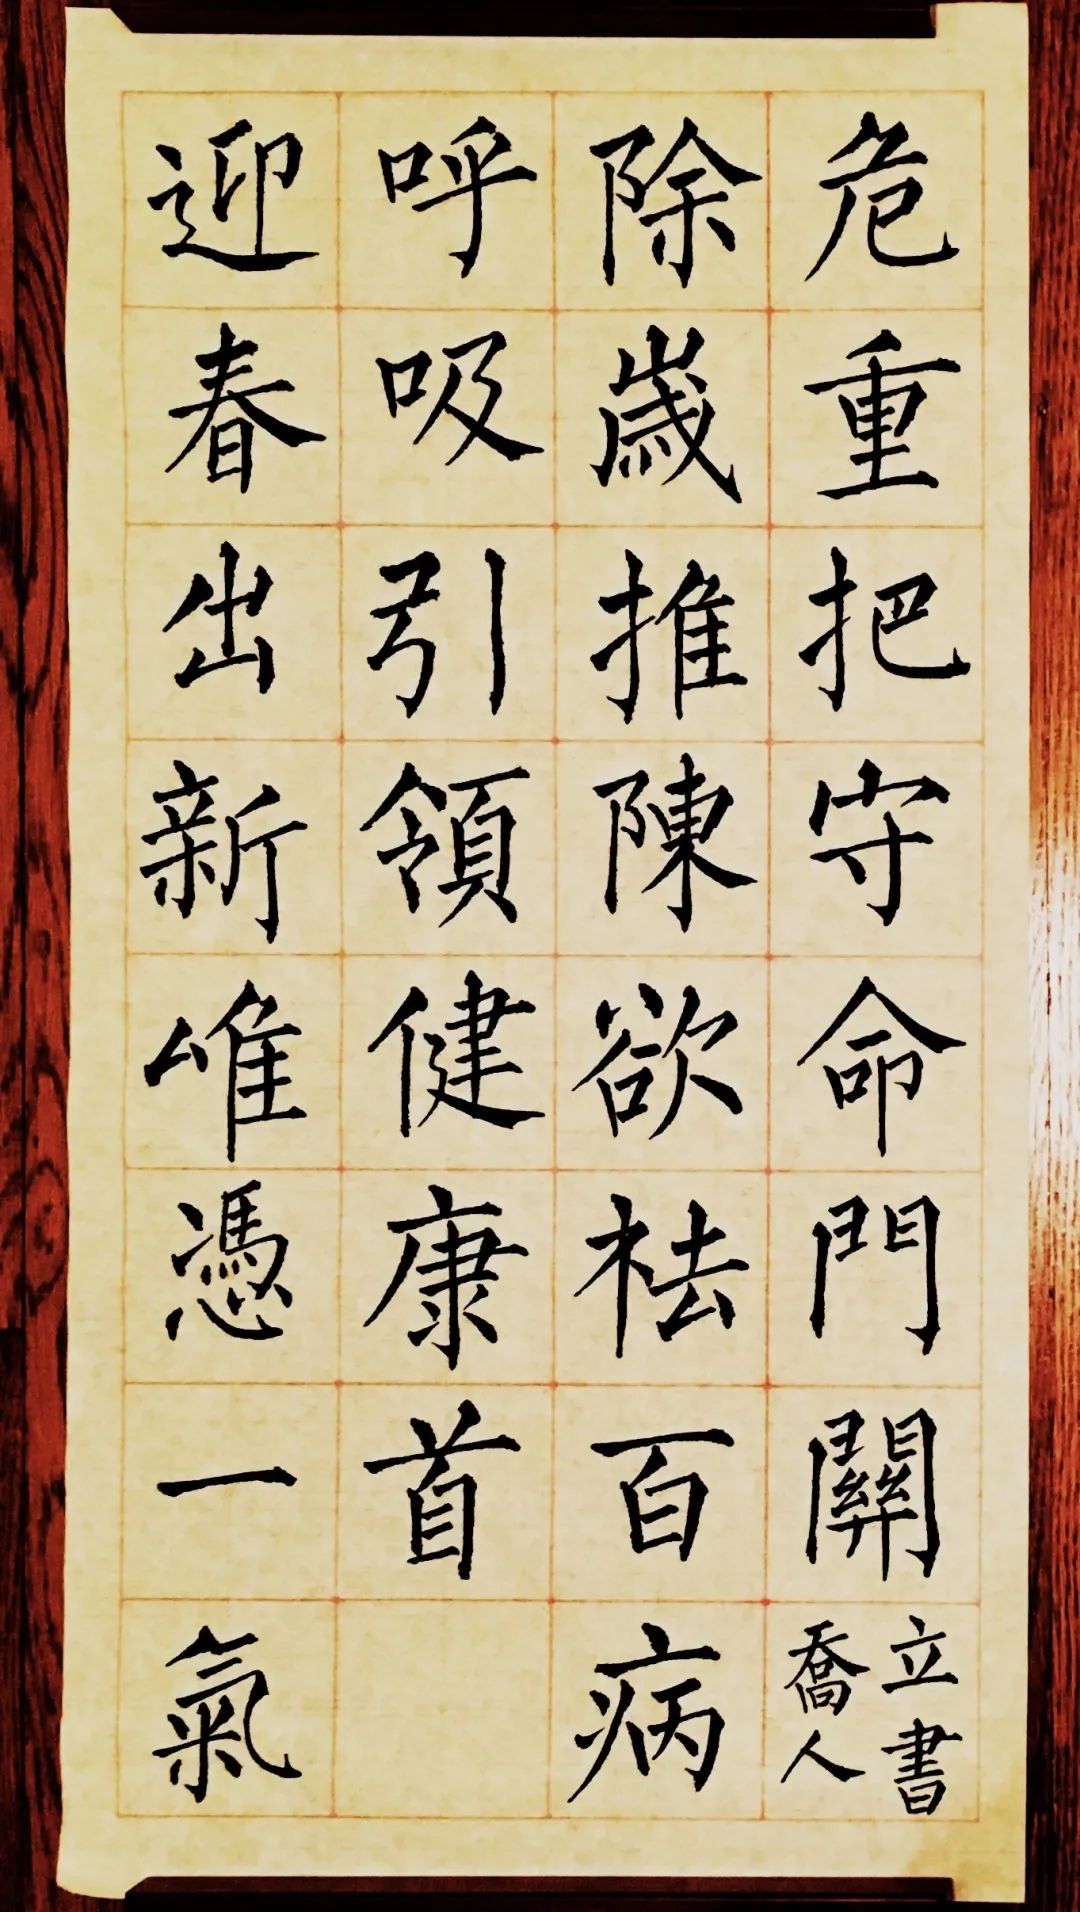 迎春出新唯憑一氣
呼吸引領健康首
除歲推陳欲祛百病
危重把守命門關
喬人
立書